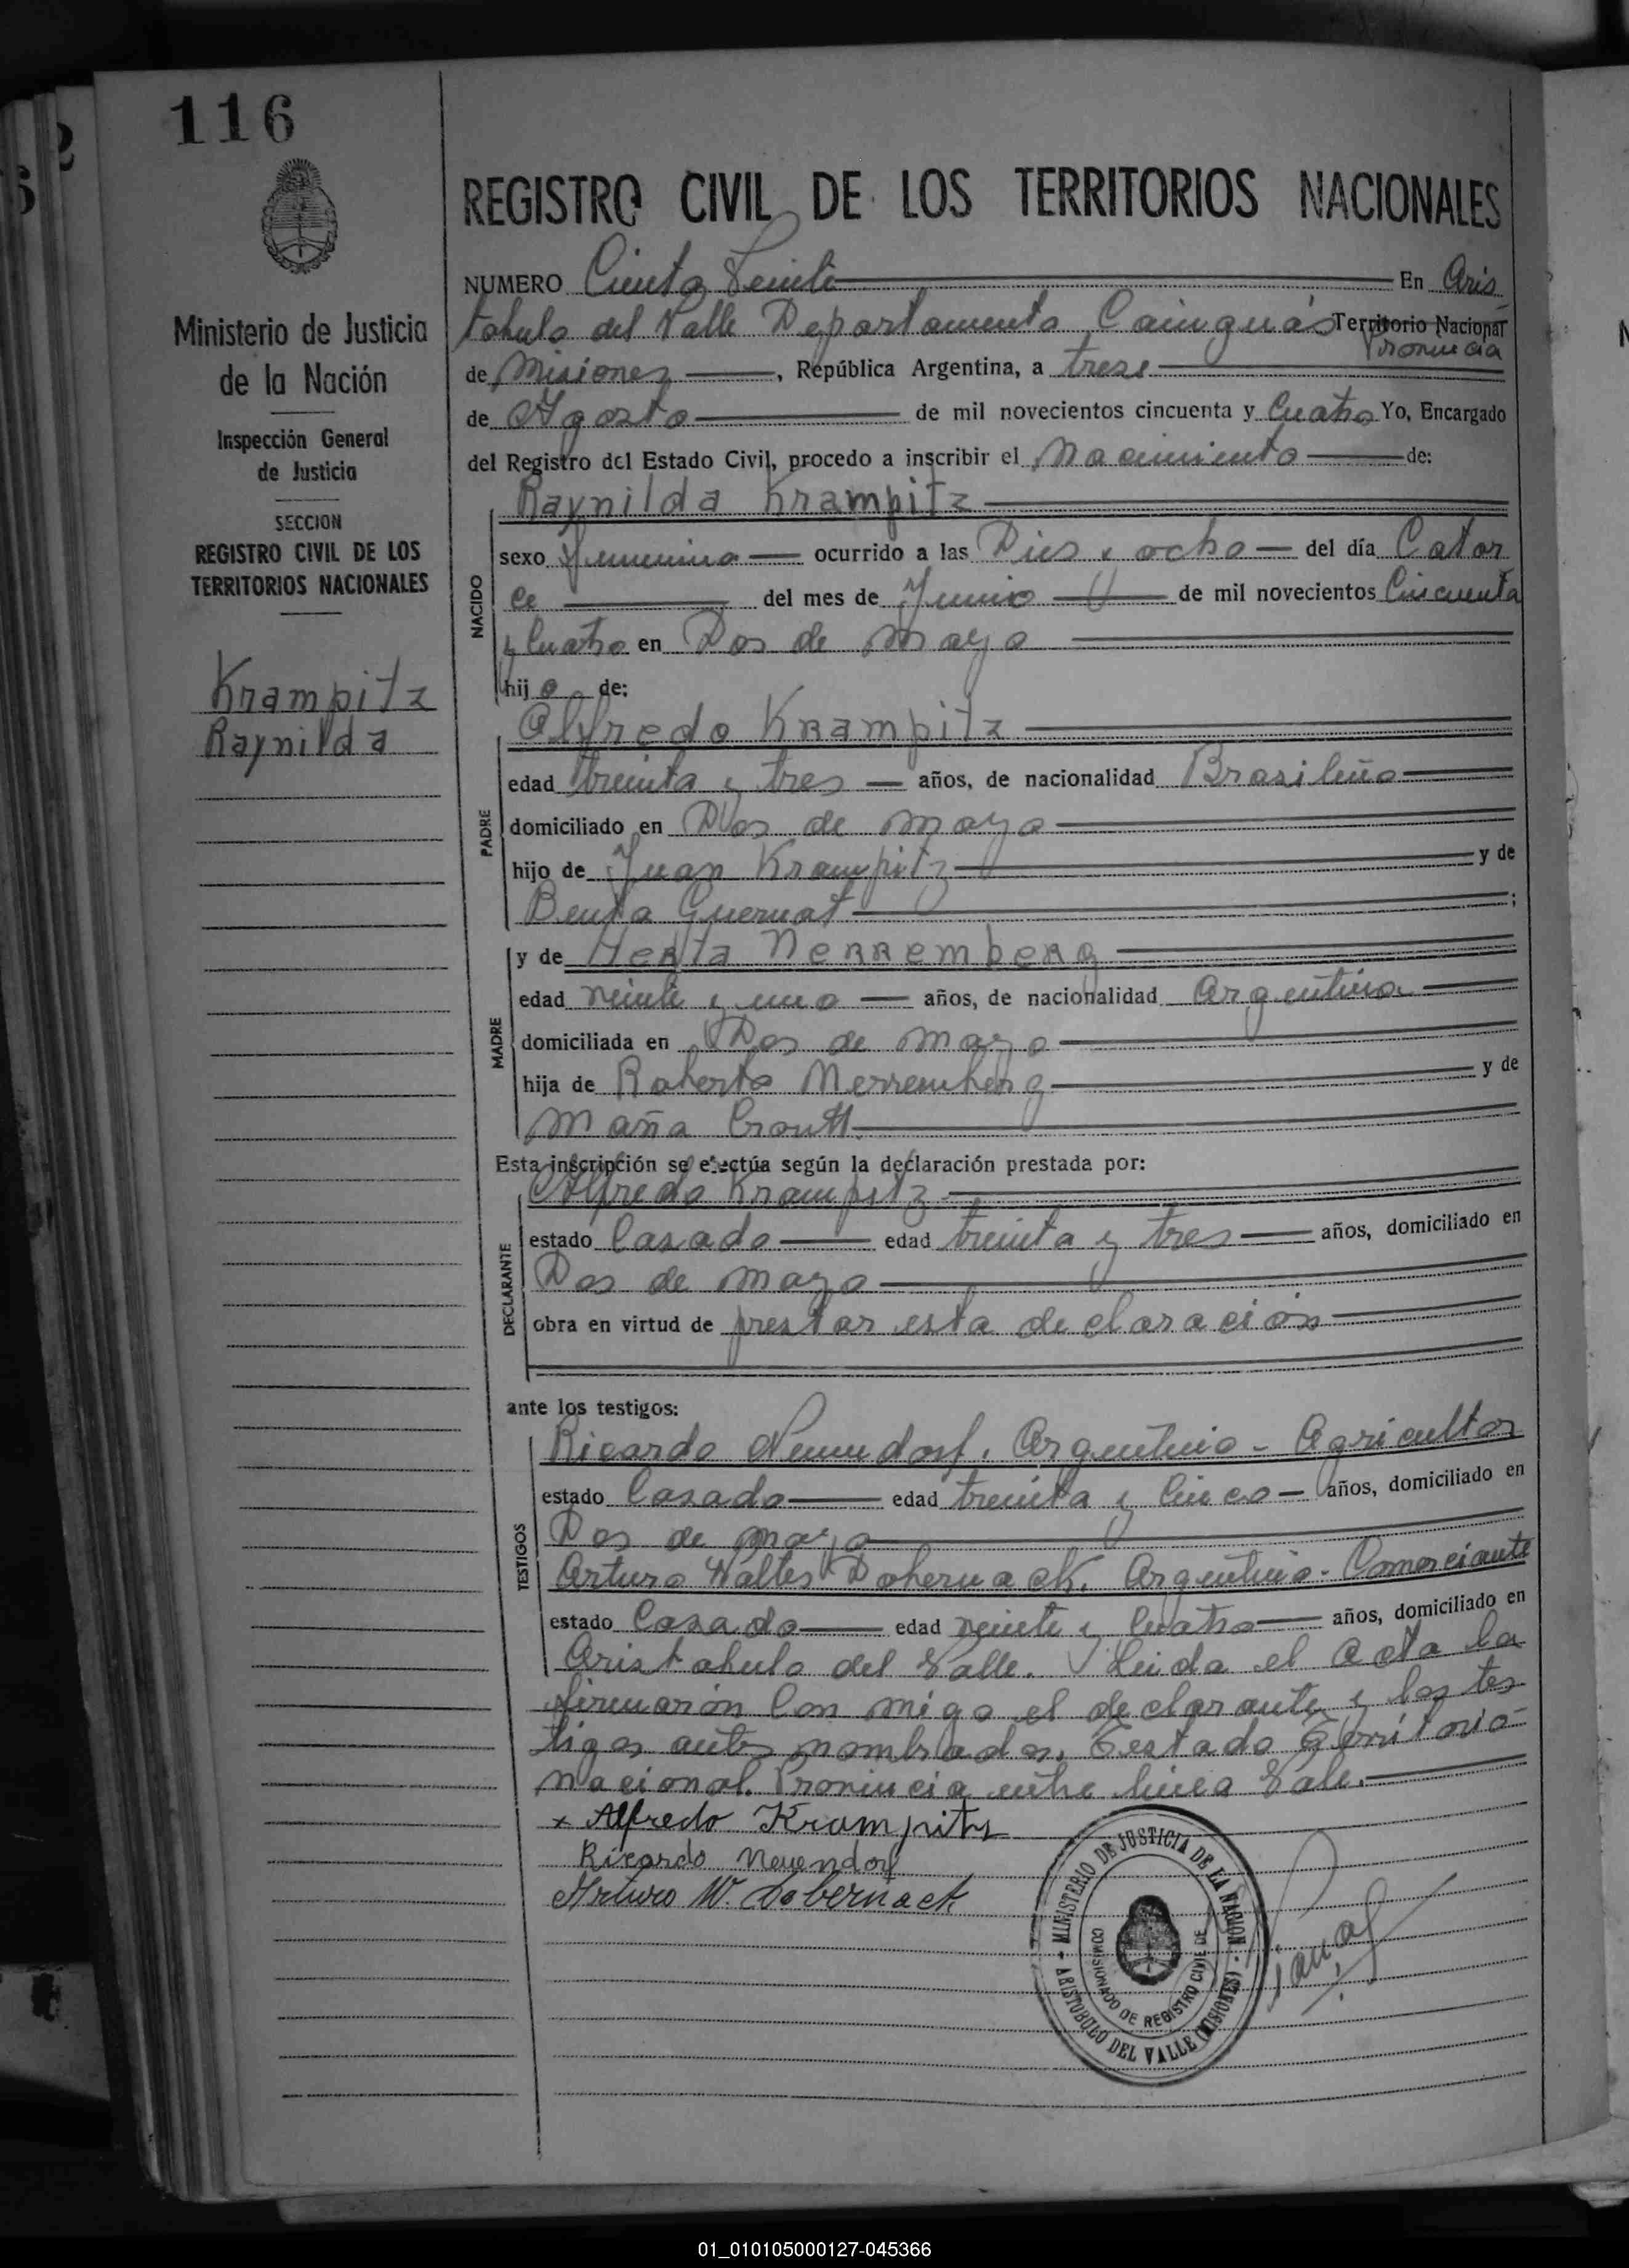 116
Ministerio de Justicia
de la Nación
Inspección General
de Justicia
SECCION
REGISTRO CIVIL DE LOS
TERRITORIOS NACIONALES
Krampitz
Raynilda
REGISTRO CIVIL DE LOS TERRITORIOS NACIONALES
NUMERO Ciento Veinte En Aris
tobulo del Valle Departamento Cainguás Territorio Nacional
Provincia
de Misiones, República Argentina, a trese
de Agosto de mil novecientos cincuenta y Cuatro Yo, Encargado
del Registro del Estado Civil, procedo a inscribir el Nacimiento de:
Raynilda Krampitz
NACIDO
sexo Femenino ocurrido a las Dies y ocho del día Cator
ce del mes de Junio de mil novecientos Cincuenta
y Cuatro en Dos de Mayo
hijo de:
Alfredo Krampitz
PADRE
edad treinta y tres años, de nacionalidad Brasileño
domiciliado en Dos de Mayo
hijo de Juan Krampitz y de
Benta Guernat;
MADRE
y de Herta Nerremberg
edad veinte y uno años, de nacionalidad Argentina
domiciliada en Dos de Mayo
hija de Roberto Nerremberg y de
Maña
Esta inscripción se efectúa según la declaración prestada por:
DECLARANTE
Alfredo Krampitz
estado Casado edad treinta y tres años, domiciliado en
Dos de Mayo
obra en virtud de prestar esta declaración
ante los testigos:
TESTIGOS
Ricardo Neuendorf. Argentino - Agricultor
estado Casado edad treinta y Cinco años, domiciliado en
Dos de Mayo
Arturo Walter Dobernack. Argentino - Comerciante
estado Casado edad veinte y Cuatro años, domiciliado en
Aristobulo del Valle. Leida el Acta la
firmarón Con migo el declarante y los tes
tigos antes nombrados. Testado Territorio
Nacional. Provincia entre linea Vale.
x Alfredo Krampitz
Ricardo Neuendorf
Arturo W. Dobernack
MINISTERIO DE JUSTICIA DE LA NACION
COMISIONADO DE REGISTRO CIVIL DE
ARISTOBULO DEL VALLE (MISIONES)
01_010105000127-045366